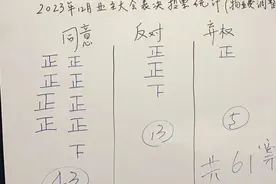 2023年12月业主大会表决投票统计(物业费调整
同意
正 正
正 正
正 正
正 正
下
43
反对
正
正
下
13
弃权
正
5
共61票